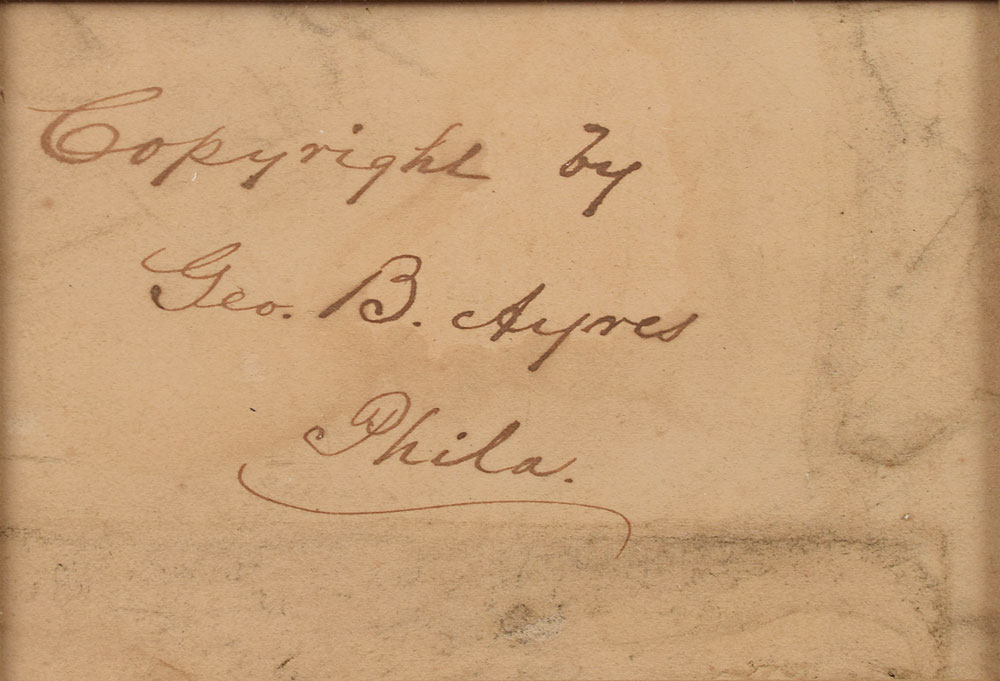 Copyright by
Geo. B. Ayres
Phila.